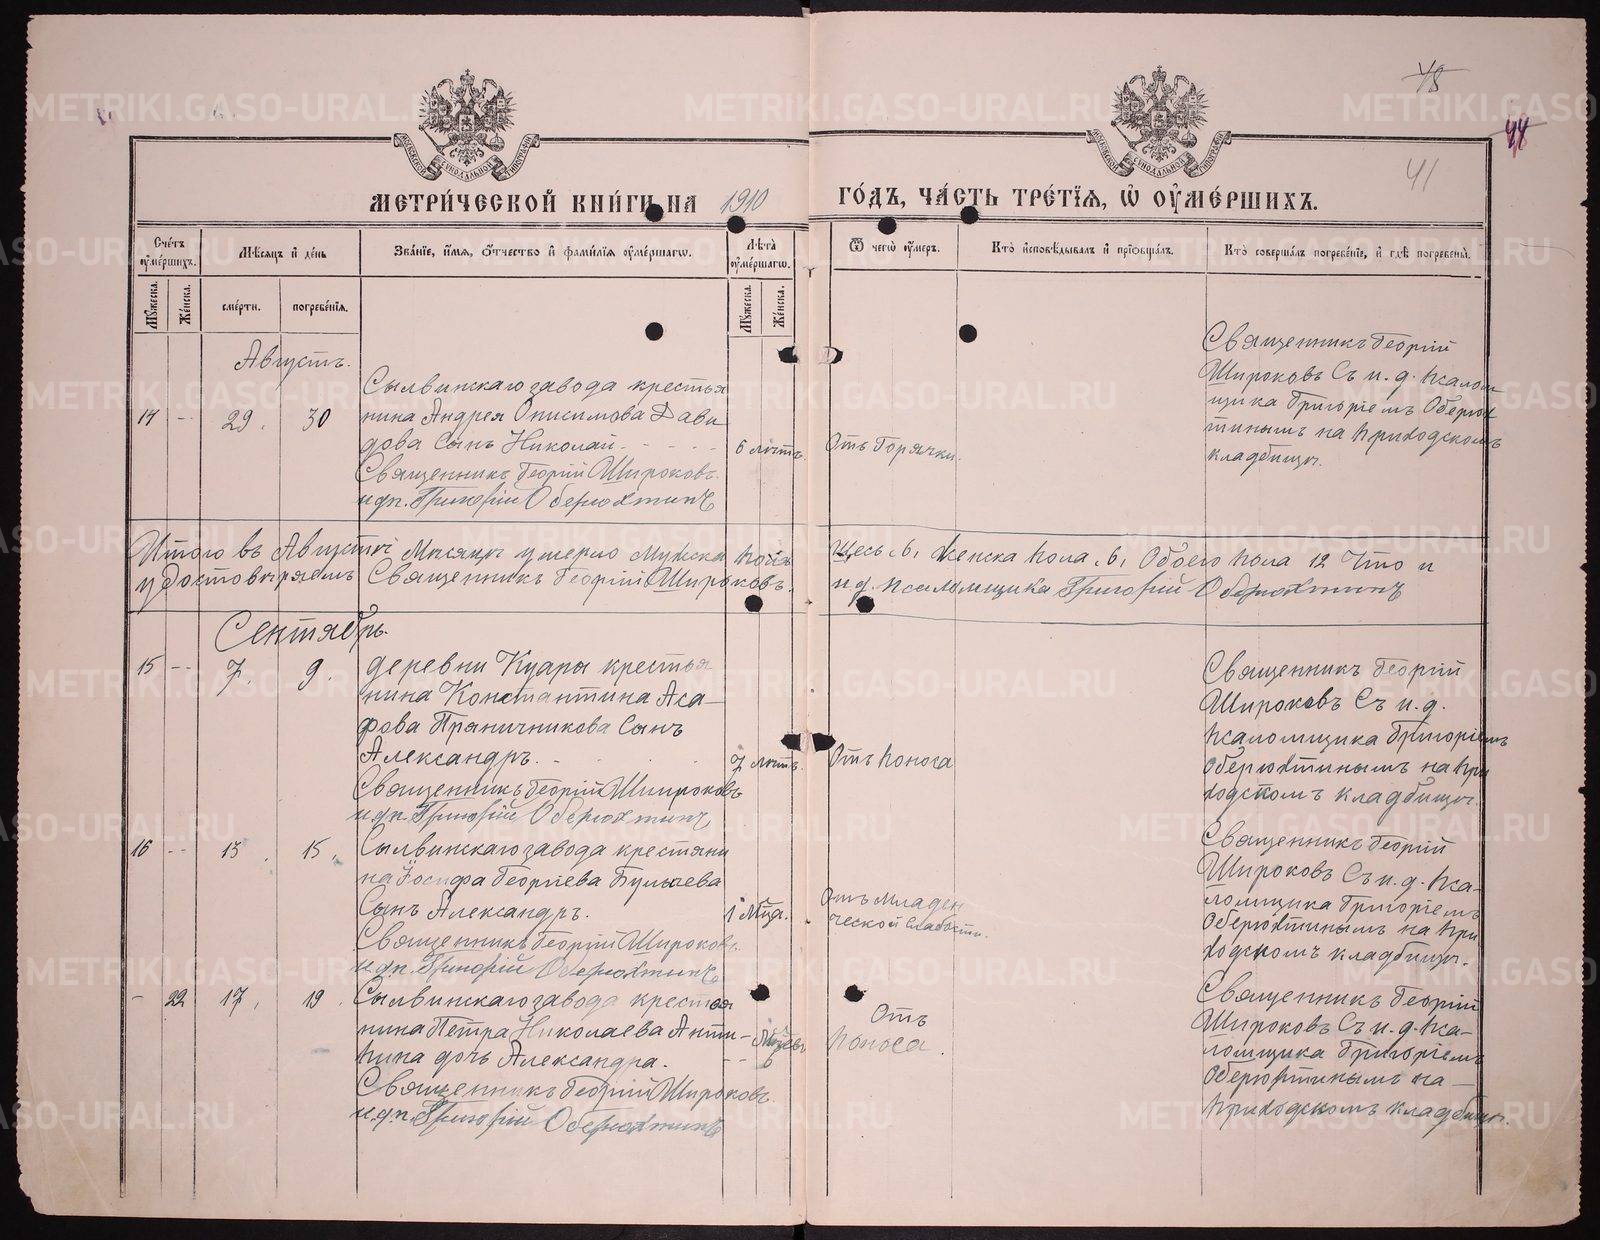 48
44
41
МЕТРИ́ЧЕСКОЙ КНИ́ГИ НА 1910 ГО́ДЪ, ЧА́СТЬ ТРЕ́ТІЯ, Ѡ҆ ОУ҆МЕ́РШИХЪ.
Сче́тъ оу҆ме́ршихъ.
Мѣ́сяцъ и҆ де́нь
Зва́ніе, и҆́мя, ѻ҆́тчество и҆ фами́лія оу҆ме́ршагѡ.
Лѣ́та оу҆ме́ршагѡ.
Ѿ чегѡ̀ оу҆́меръ.
Кто̀ и҆сповѣ́дывалъ и҆ прїѡбща́лъ.
Кто̀ соверша́лъ погребе́ніе, и҆ гдѣ̀ погребены̀.
Му́жеска.
Же́нска.
сме́рти.
погребе́нія.
Му́жеска.
Же́нска.
Августъ.
14 -- 29. 30
Сылвинскаго завода крестья
нина Андрея Онисимова Дави
дова сынъ Николай
Священникъ Георгій Широковъ.
и.д.п. Григорій Оберюхтинъ
6 лѣтъ.
Отъ Горячки.
Священникъ Георгій
Широковъ Съ и. д. псалом
щика Григоріемъ Оберюх
тинымъ на приходскомъ
кладбищѣ.
Итого въ Августѣ Мѣсяцѣ умерло Мужска пола Шесь „6„ Женска пола „6„ Обоего пола 12 Что и
удостовѣряемъ Священникъ Георгій Широковъ. и д. псаломщика Григорій Оберюхтинъ
Сентябрь.
15 -- 7. 9.
деревни Куары крестья
нина Константина Аса-
фова Пряничникова Сынъ
Александръ.
Священникъ Георгій Широковъ
и.д.п. Григорій Оберюхтинъ
7 лѣтъ.
Отъ поноса
Священникъ Георгій
Широковъ Съ и. д.
псаломщика Григоріемъ
Оберюхтинымъ на при
ходскомъ кладбищѣ.
16 -- 13. 15.
Сылвинскаго завода крестяни
на Іосифа Георгіева
Сынъ Александръ.
Священникъ Георгій Широковъ.
и.д.п. Григорій Оберюхтинъ
1 мца.
Отъ младен
ческой слабости.
Священникъ Георгій
Широковъ Съ и. д. пса-
ломщика Григоріемъ
Оберюхтинымъ на при
ходскомъ кладбищѣ.
- 22 17. 19.
Сылвинскаго завода крестья
нина Петра Николаева Анти-
пина дочь Александра.
Священникъ Георгій Широковъ.
и.д.п. Григорій Оберюхтинъ
6
Отъ
поноса.
Священникъ Георгій
Широковъ Съ и. д. пса-
ломщика Григоріемъ
Оберюхтинымъ на-
приходскомъ кладбищѣ.
METRIKI.GASO-URAL.RU